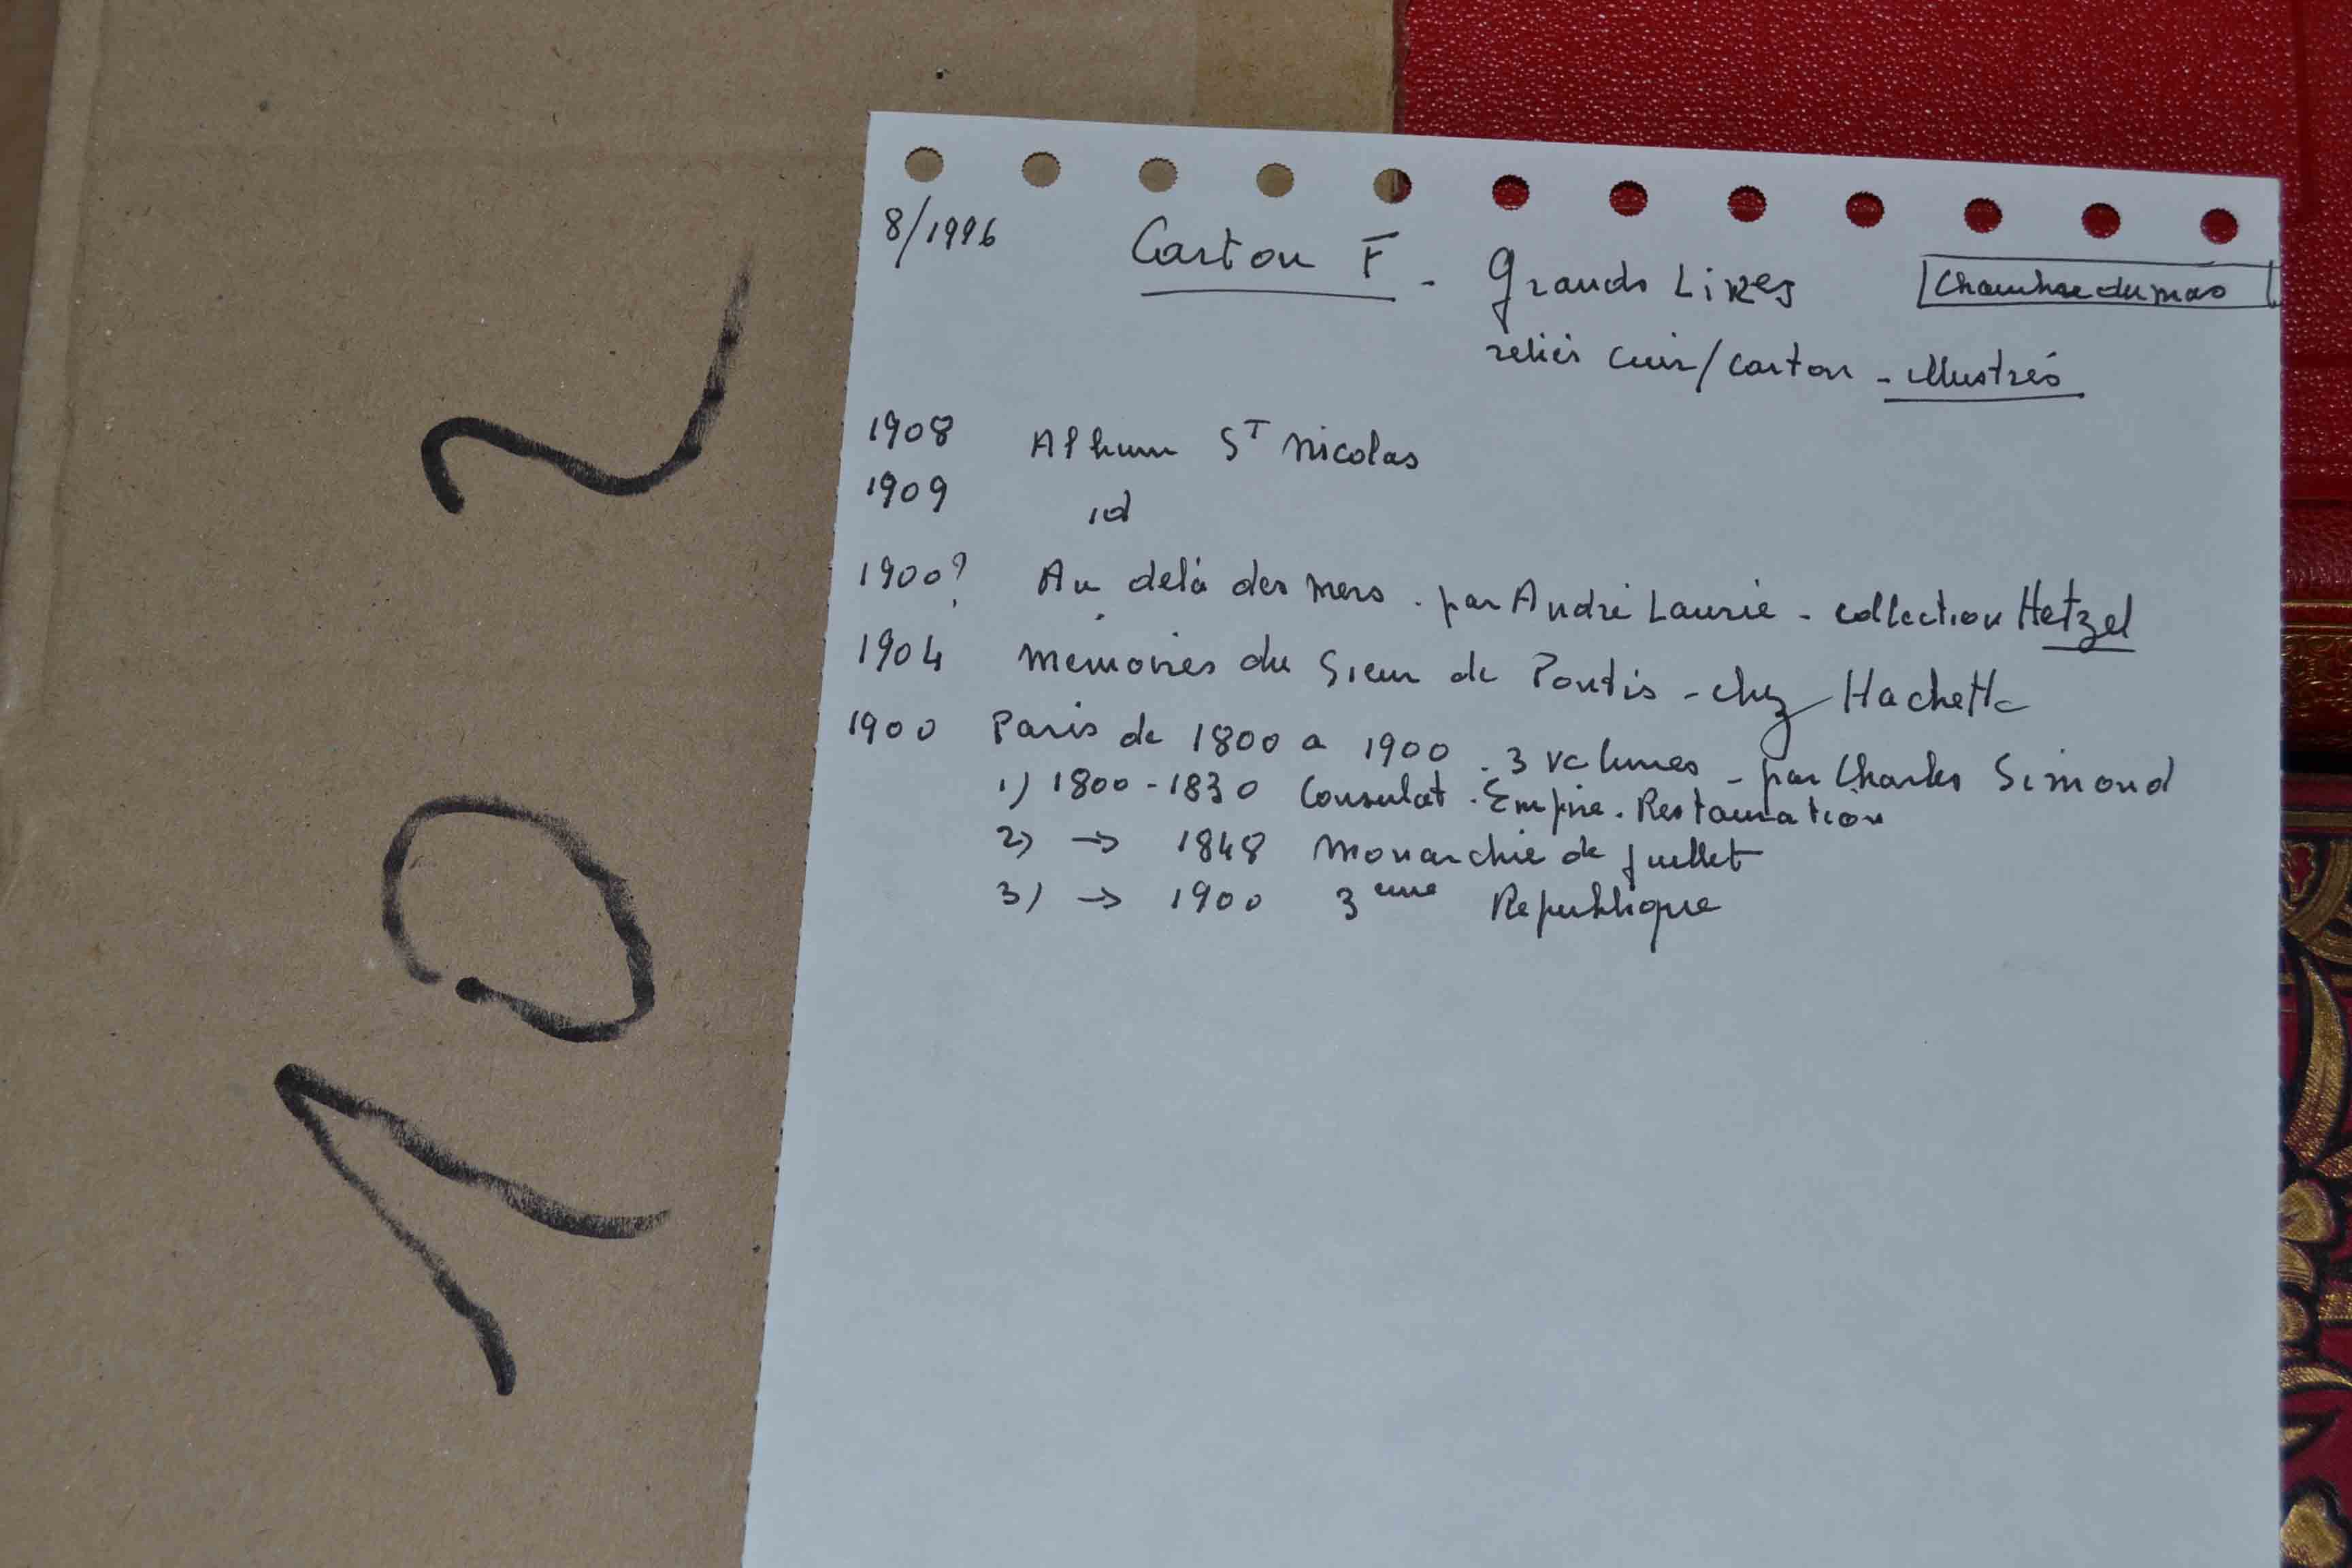 102
8/1996 Carton F - Grands Livres Chambre du mas
reliés cuir/carton - illustrés
1908 Album ST Nicolas
1909 id
1900? Au delà des mers - par André Laurie - collection Hetzel
1904 Mémoires du Sieur de Pontis - chez Hachette
1900 Paris de 1800 a 1900 - 3 volumes - par Charles Simond
1) 1800-1830 Consulat - Empire - Restauration
2) → 1848 Monarchie de Juillet
3) → 1900 3eme Republique